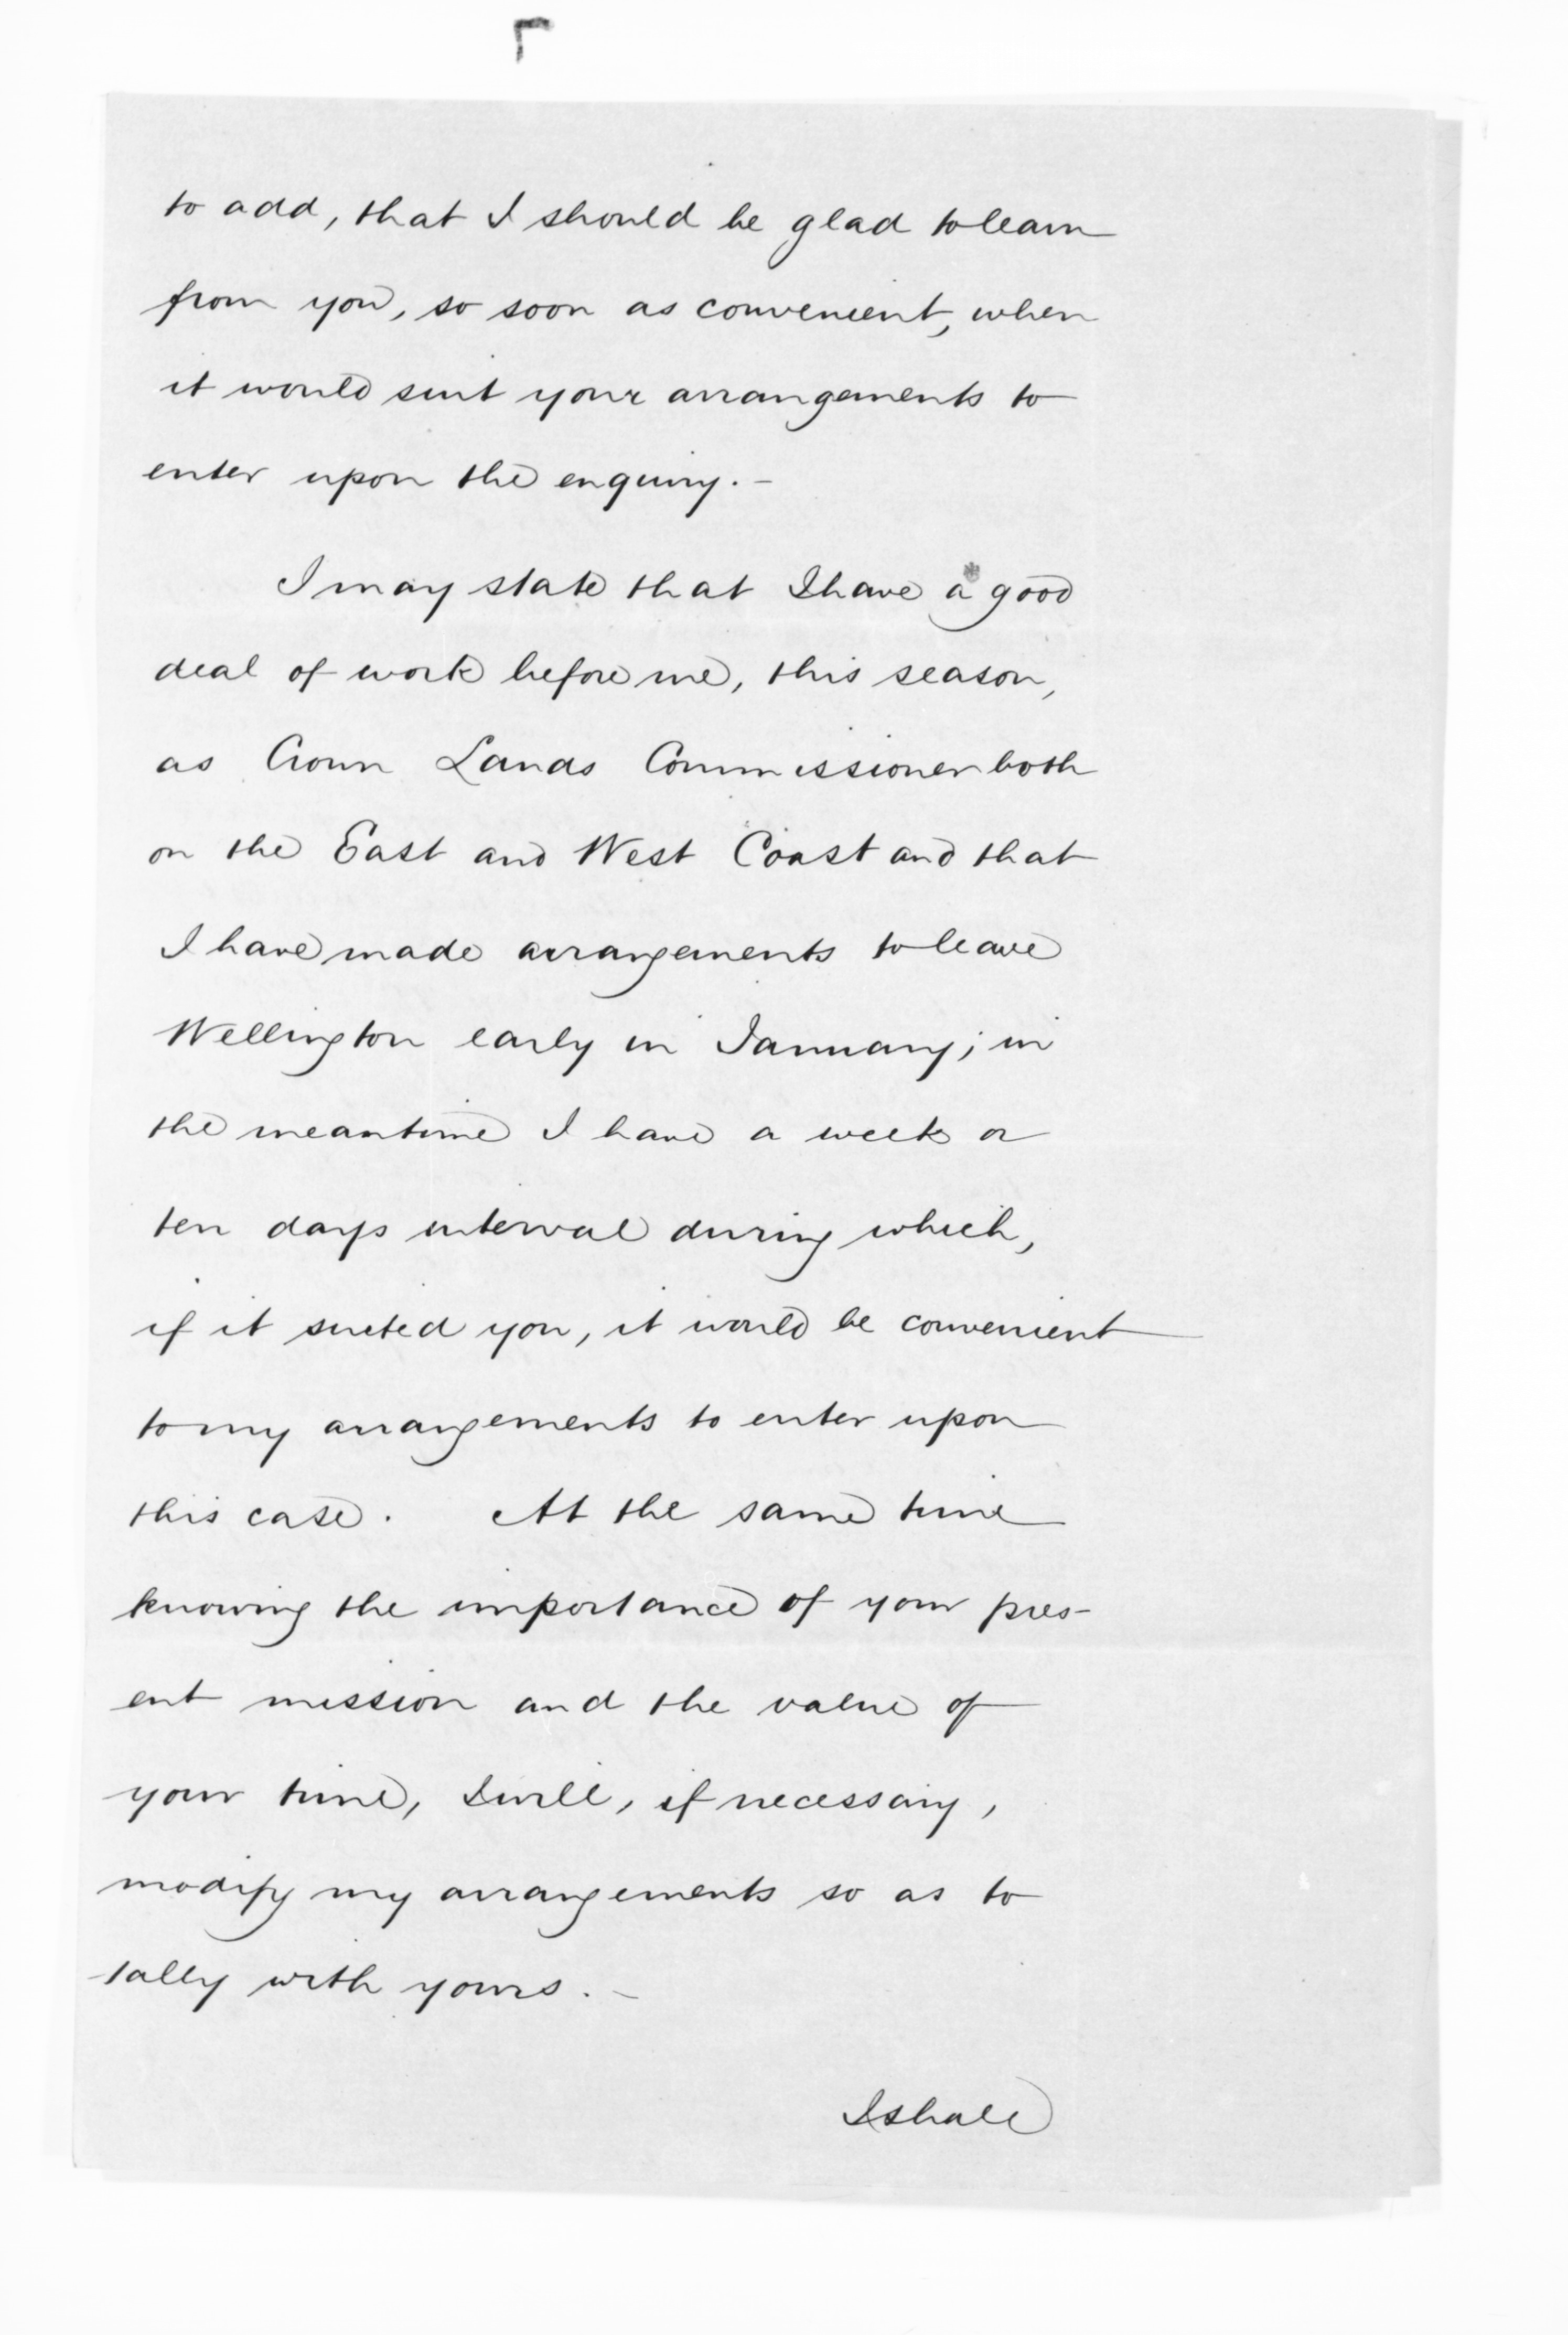 to add, that I should be glad to learn
from you, so soon as convenient, when
it would suit your arrangements to
enter upon the enquiry. -
I may state that I have a good
deal of work before me, this season,
as Crown Lands Commissioner both
on the East and West Coast and that
I have made arrangements to leave
Wellington early in January; in
the meantime I have a week or
ten days interval during which,
if it suited you, it would be convenient
to my arrangements to enter upon
this case. At the same time
knowing the importance of your pres-
ent mission and the value of
your time, I will, if necessary,
modify my arrangements so as to
tally with yours. -
I shall